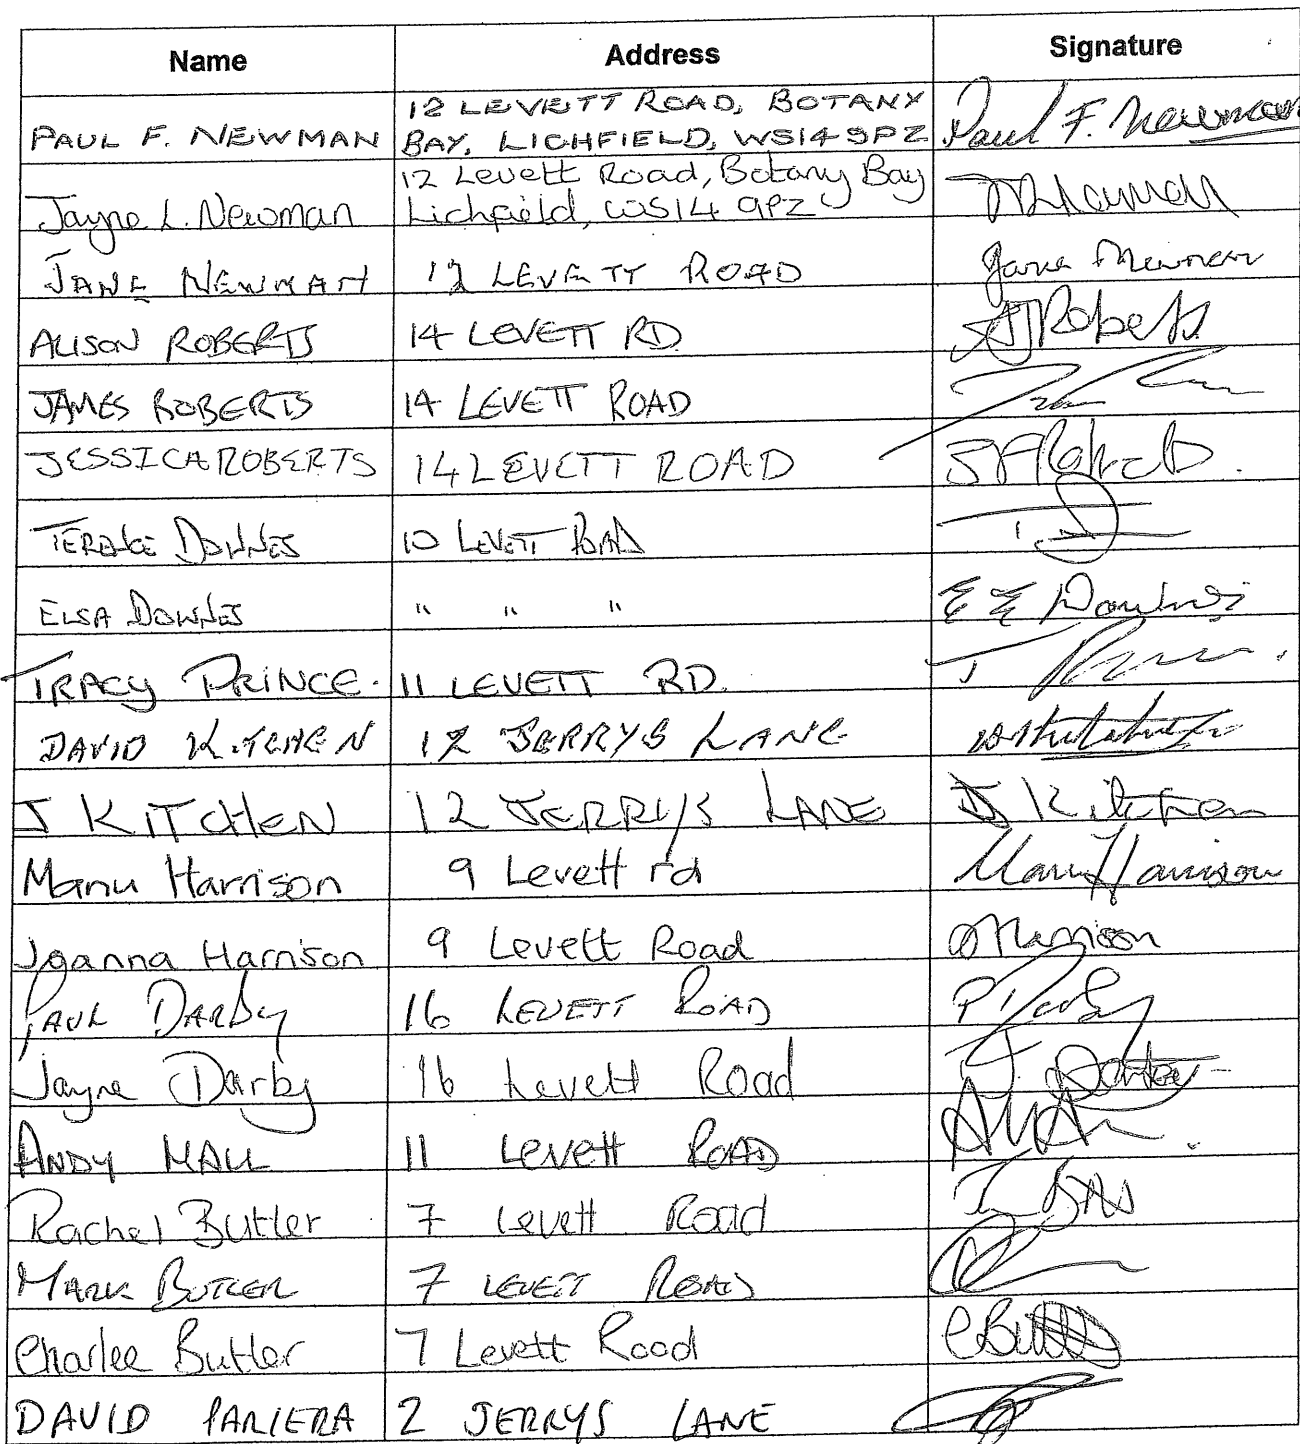 Name Address Signature
PAUL F. NEWMAN 12 LEVETT ROAD, BOTANY
BAY, LICHFIELD, WS14 9PZ Paul F. Newman
Jayne L. Newman 12 Levett Road, Botany Bay
Lichfield, WS14 9PZ
JANE NEWMAN 12 LEVETT ROAD Jane Newman
ALISON ROBERTS 14 LEVETT RD. AJRoberts.
JAMES ROBERTS 14 LEVETT ROAD
JESSICA ROBERTS 14 LEVETT ROAD
TERENCE DOWNES 10 LEVETT ROAD
ELSA DOWNES " " "
TRACY PRINCE. 11 LEVETT RD.
DAVID KITCHEN 12 JERRYS LANE
J KITCHEN 12 JERRYS LANE J Kitchen
Manu Harrison 9 Levett rd Manu Harrison
Joanna Harrison 9 Levett Road
PAUL DARBY 16 LEVETT ROAD P Darby
Jayne Darby 16 Levett Road J. Darby
ANDY HALL 11 Levett ROAD
Rachel Butler 7 Levett Road
MARK BUTLER 7 LEVETT ROAD
Charlee Butler 7 Levett Road
DAVID PARIERA 2 JERRYS LANE